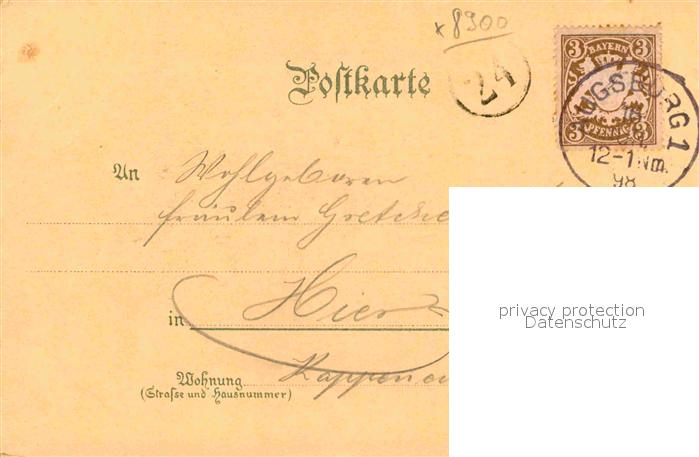 x 8900
Postkarte
24
3 BAYERN 3
3 PFENNIG 3
AUGSBURG 1
15
12-1 Nm.
98
An Wohlgeboren
Fräulein Gretche
in Hier
Wohnung Kappene
(Strasse und Hausnummer)
privacy protection
Datenschutz